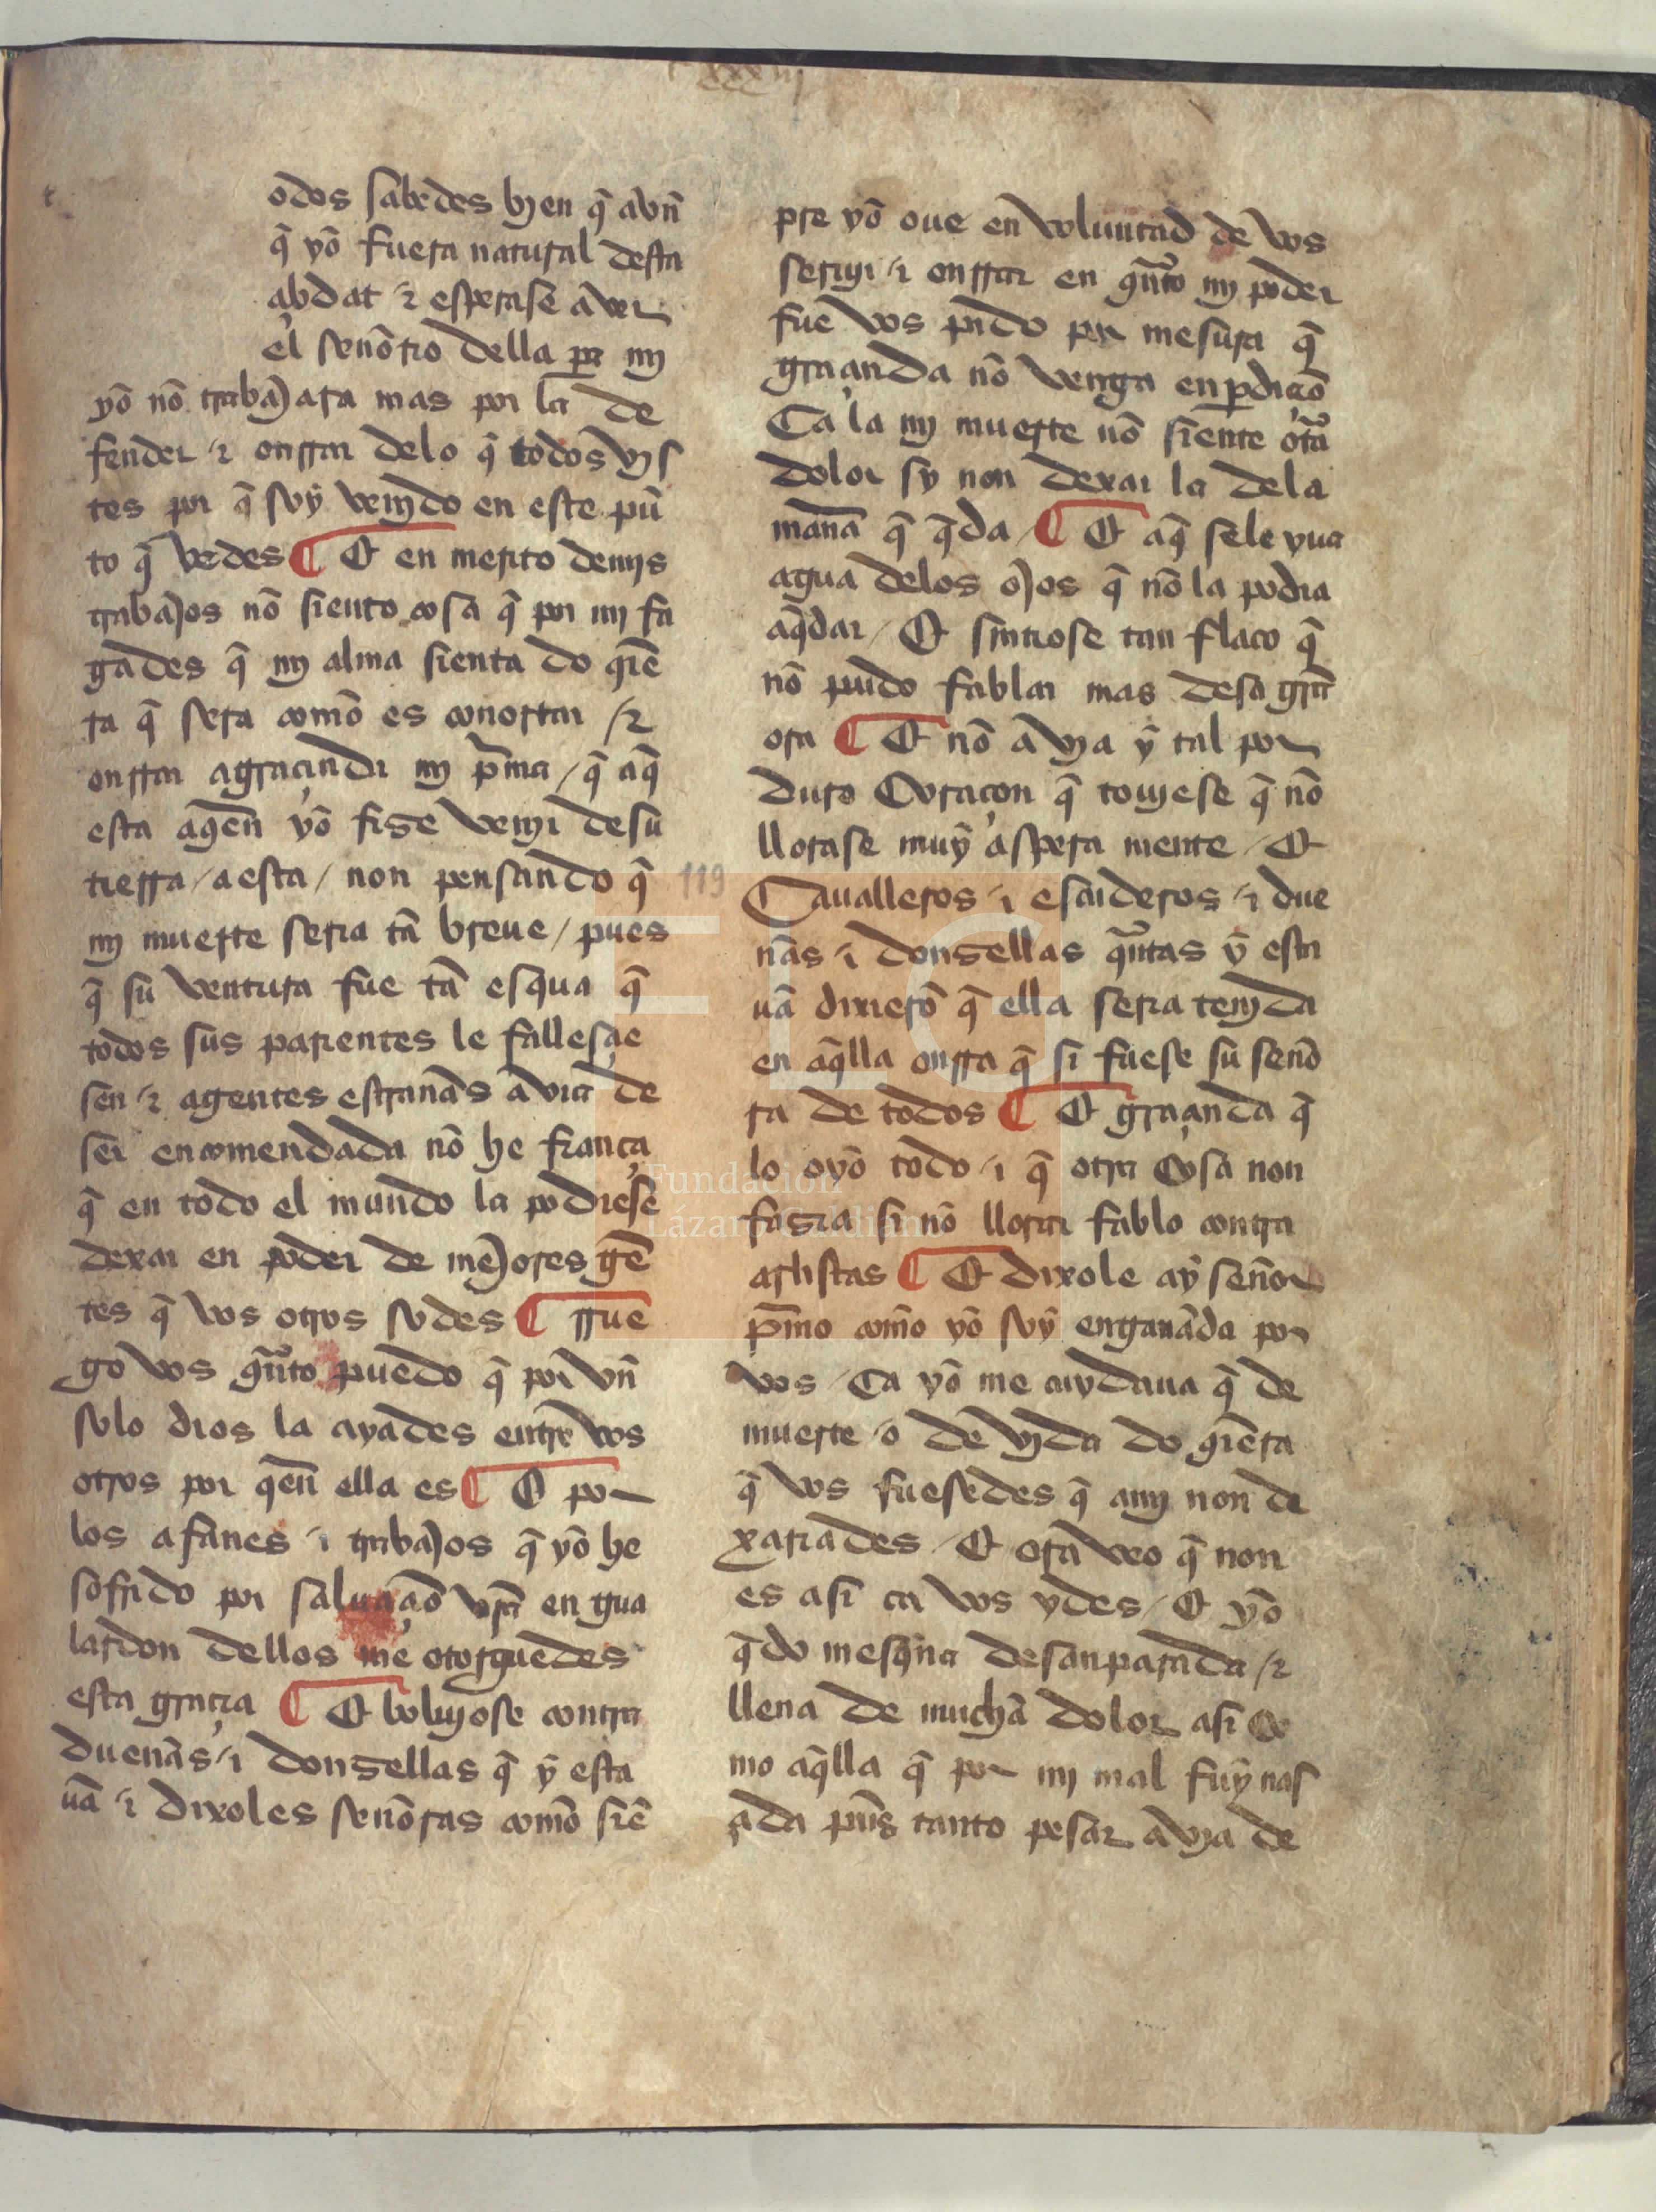 cxxxiij
t
odos sabedes byen q̃ avn̄
q̃ yō fuera natural desta
çibdat ⁊ esperase aver
el señorio della pa my
yō nō trabajara mas por la de
fender ⁊ onrrar delo q̃ todos vjs
tes por q̃ soȳ venjdo en este pū
to q̃ vedes ¶ E en merito demjs
trabajos nō siento cosa q̃ por mj fa
gades q̃ mj alma sienta do q̄e
ra q̃ sera comō es conortar ⁊
onrrar agraçiando mj p̄ma / q̃ aq̄
esta aqen̄ yō fise venjr desu
tierra / aesta / non pensando q̃
mj muerte seria tā breue / pues
q̃ su ventura fue tā esqua q̃
todos sus parientes le fallesçie
sen ⁊ agentes estrañas avia de
ser encomendada nō he fiança
q̃ en todo el mundo la podiese
dexar en poder de mejores gē
tes q̃ vos otros sodes ¶ rrue
go vos q̄nto puedo q̃ por vn̄
solo dios la ayades entre vos
otros por qen̄ ella es ¶ E por
los afanes ⁊ trabajos q̃ yō he
sofrido por saluaçiō vr̄a en gua
lardon dellos me otorguedes
esta graçia ¶ E boluyose contra
dueñas ⁊ donsellas q̃ ȳ esta
uā ⁊ dixoles señoras comō siē
119
pre yō oue en voluntad de vos
seruir ⁊ onrrar en q̄nto mj poder
fue vos pido por mesura q̃
graçianda nō venga en ꝑdiçiō
Ca la mj muerte nō siente otrā
dolor sy non dexar la dela
mañana q̃ q̄da / ¶ E aq̄ sele yua
agua delos ojos q̃ nō la podia
aq̄dar / E sintiose tan flaco q̃
nō pudo fablar mas desa grā
ora ¶ E nō avia ȳ tal por
duro Coraçon q̃ touiese q̃ nō
llorase muȳ aspera mente / E
Caualleros ⁊ escuderos ⁊ due
ñas ⁊ donsellas q̄ntas ȳ esta
uā dixierō q̃ ella seria tenjda
en aq̄lla onrra q̃ si fuese su señō
ra de todos ¶ E graçianda q̃
lo oyō todo ⁊ q̃ otra Cosa non
fasia si nō llorar fablo contra
arlistas ¶ E dixole aȳ señor
p̄mo comō yō soȳ engañada por
vos / Ca yō me cuydaua q̃ de
muerte o de vjda do q̄era
q̃ vos fuesedes q̃ amj non de
xariades / E ora veo q̃ non
es asi ca vos ydes / E yō
q̄do mesq̄na desanparada ⁊
llena de mucha dolor asi Co
mo aq̄lla q̃ por mj mal fuȳ nas
çida pues tanto pesar avia de
Fundación
Lázaro Galdiano